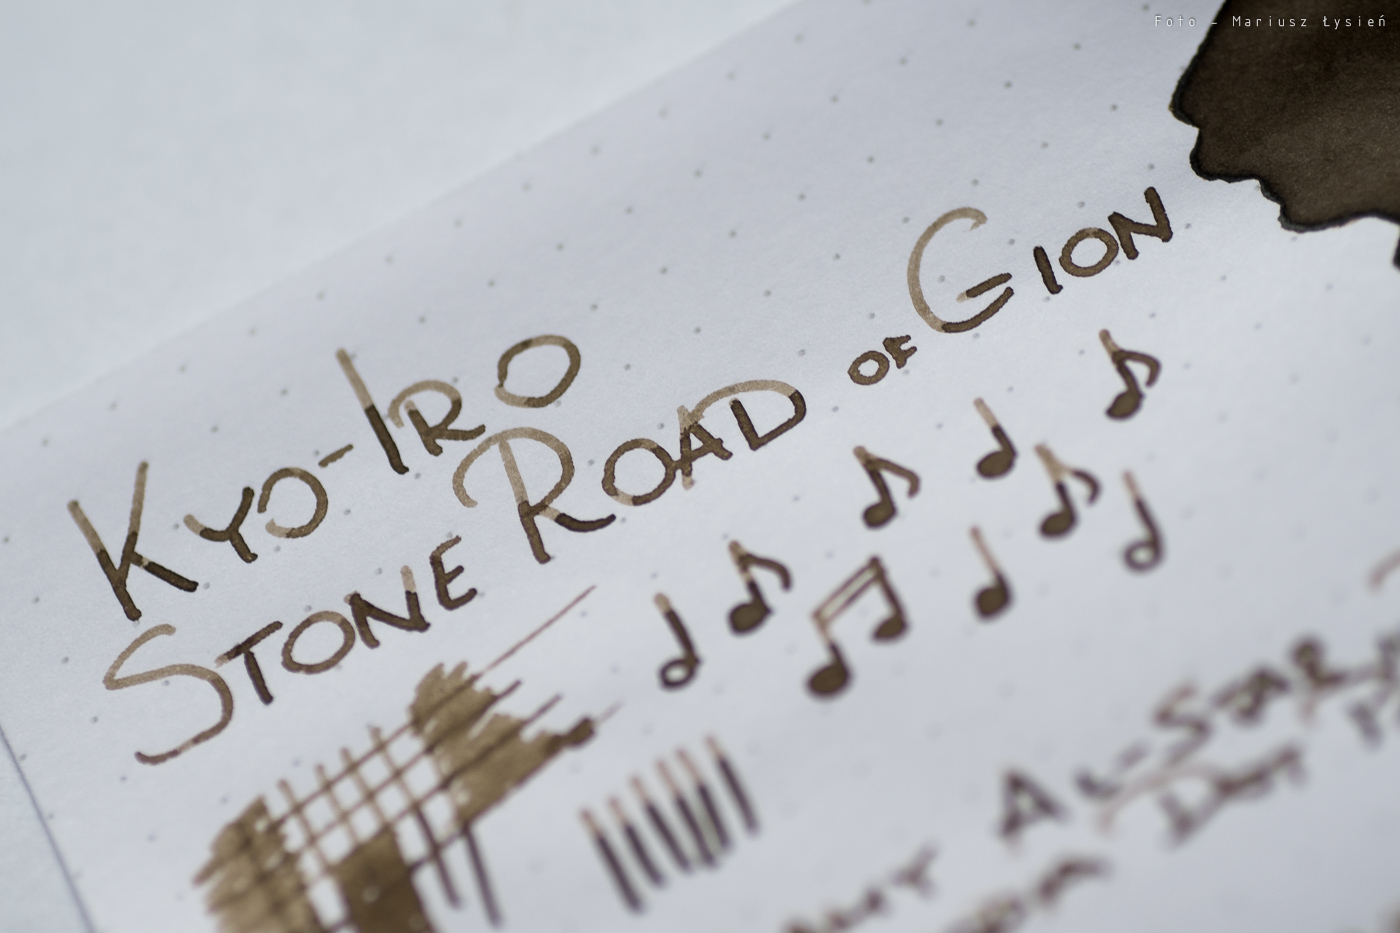 Foto - Mariusz Łysień
Kyo-Iro
Stone Road of Gion
Al-Star
Dot